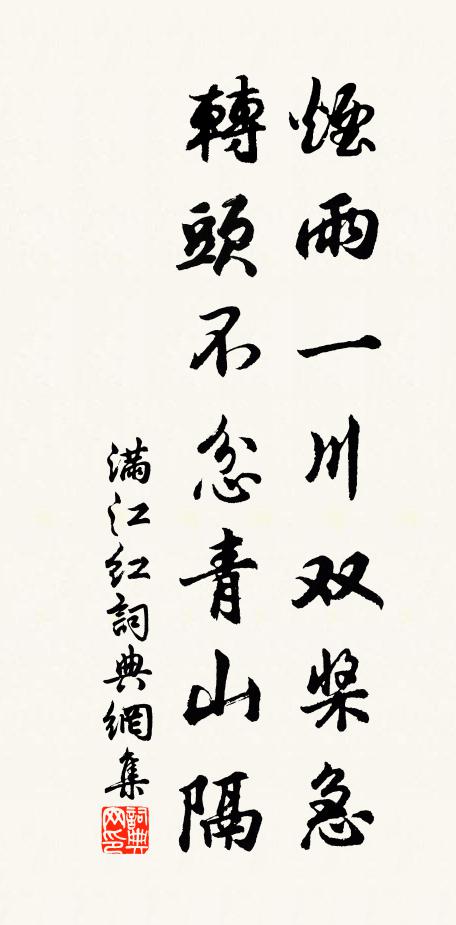 煙雨一川双桨急
轉頭不忿青山隔
满江红詞典網集
詞典网印